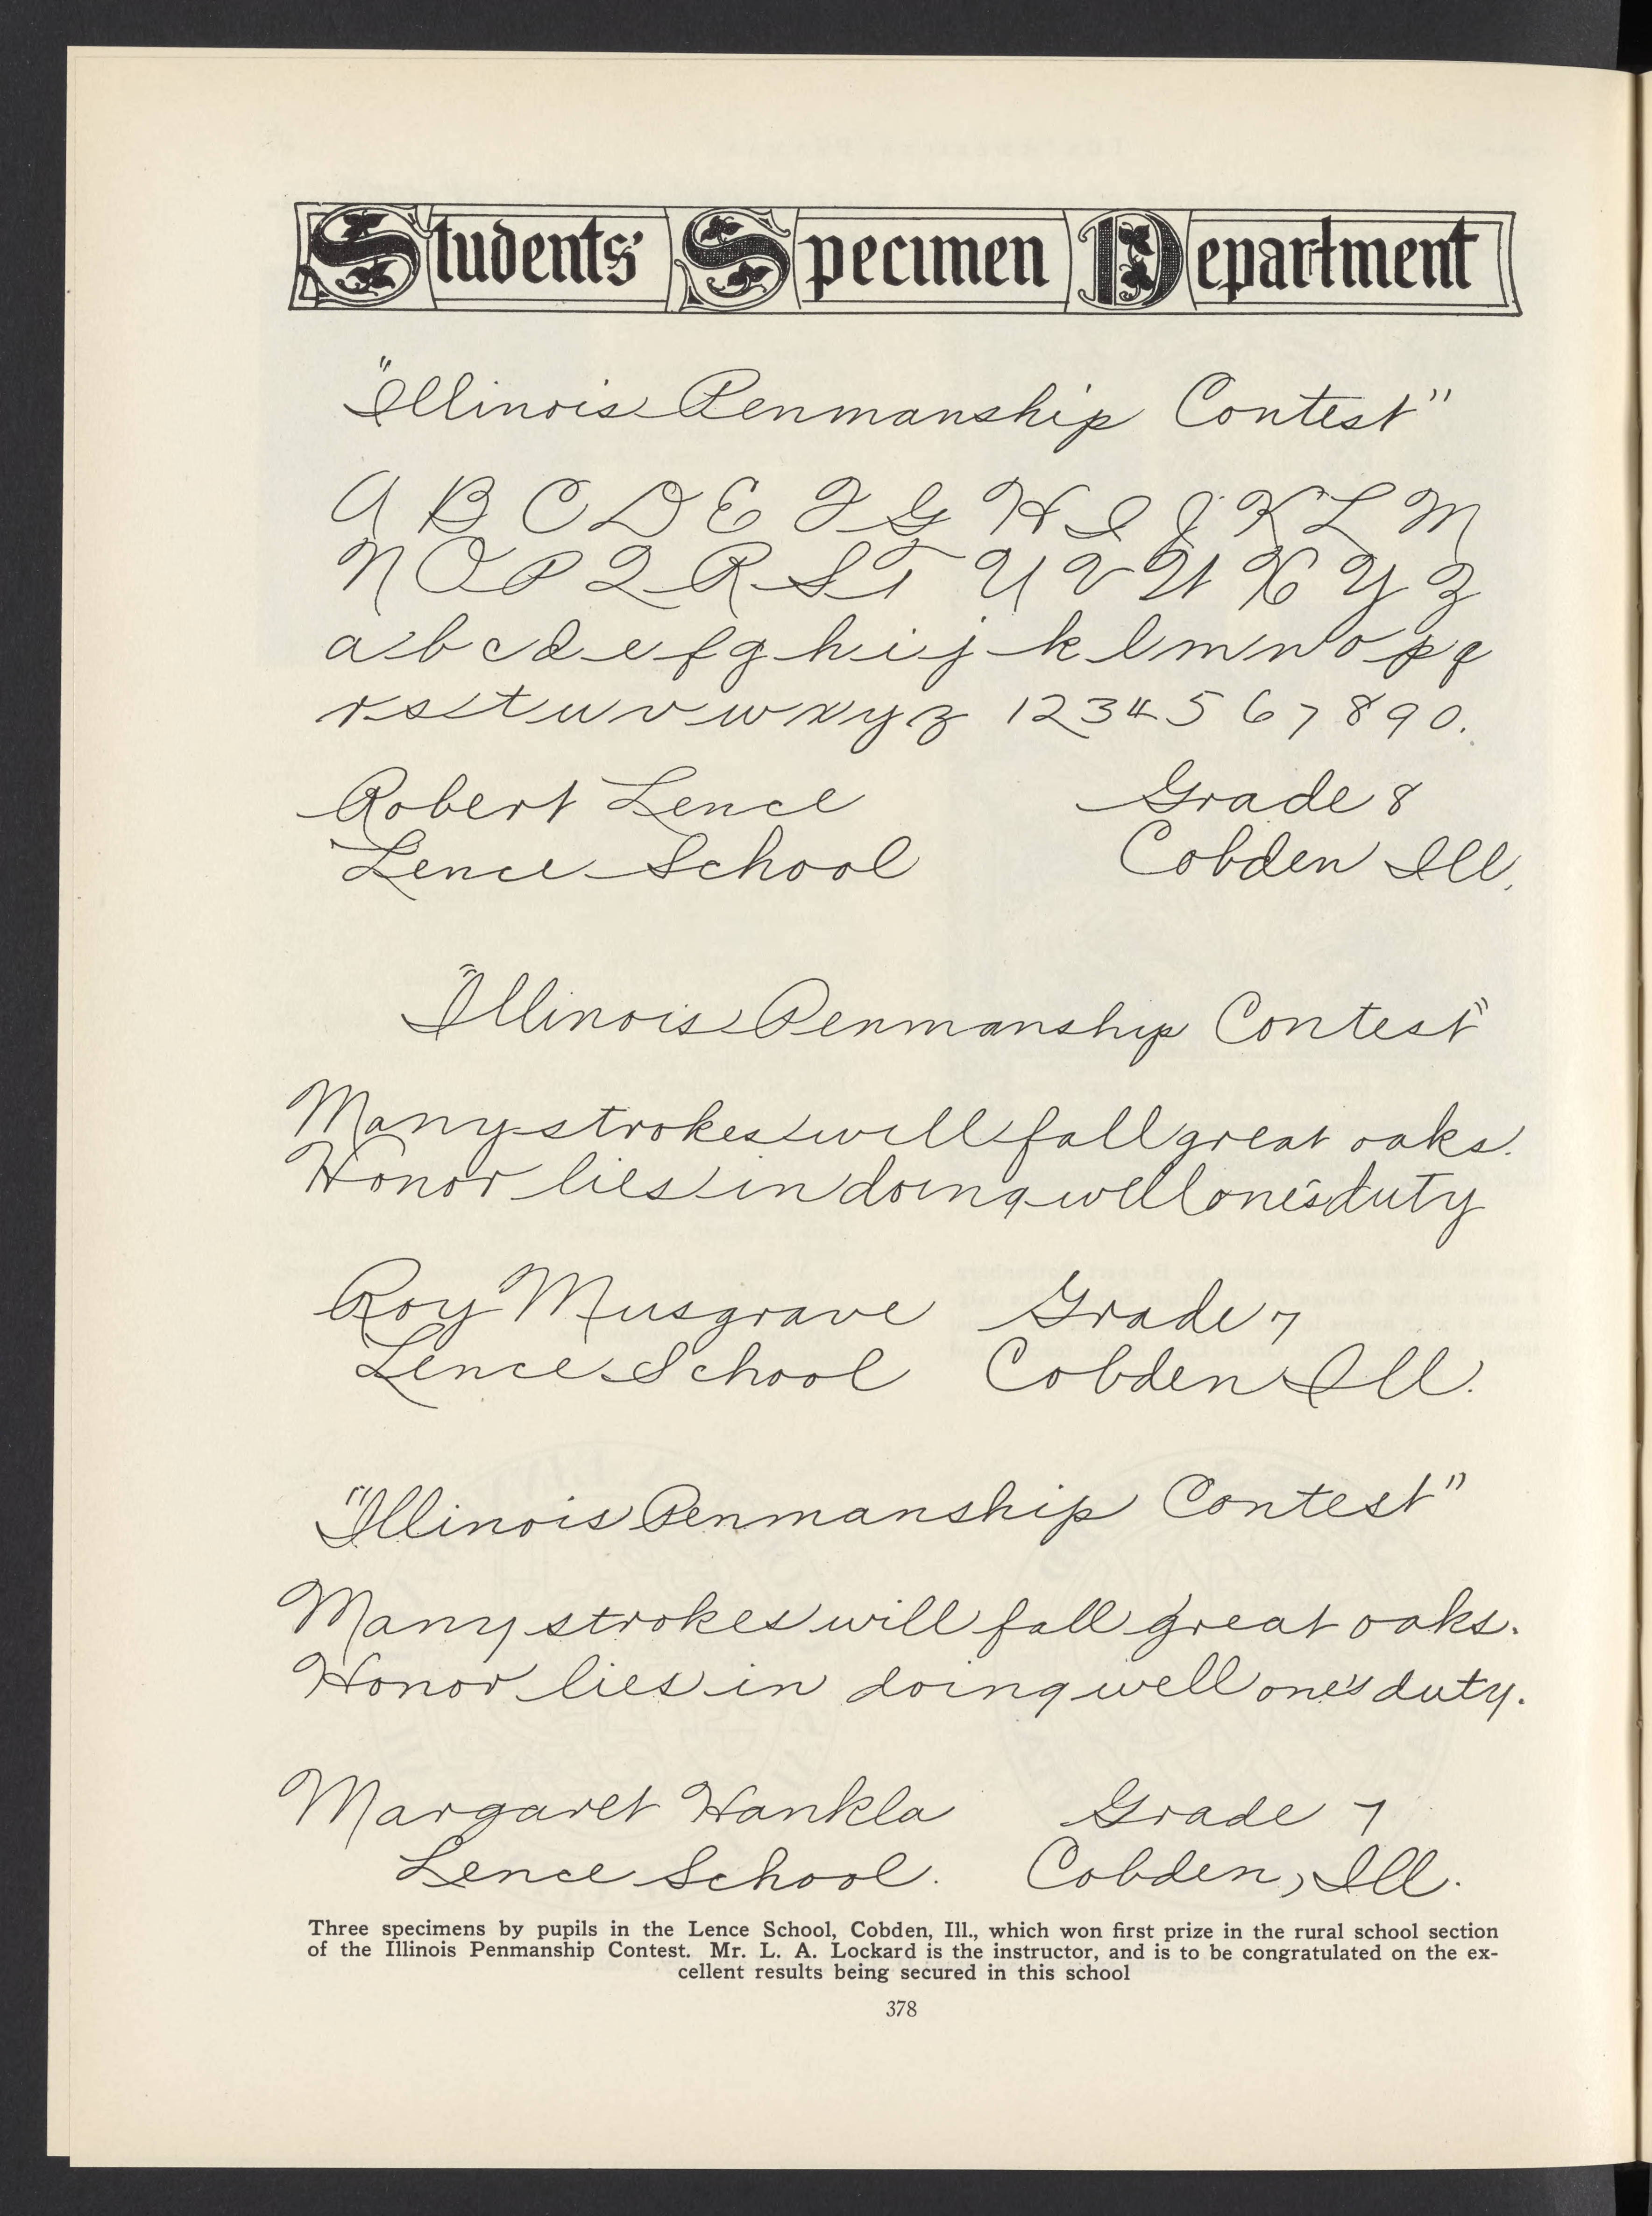 Students' Specimen Department
"Illinois Penmanship Contest"
A B C D E F G H I J K L M
N O P Q R S T U V W X Y Z
a b c d e f g h i j k l m n o p q
r s t u v w x y z 1 2 3 4 5 6 7 8 9 0.
Robert Lence Grade 8
Lence School Cobden Ill.
"Illinois Penmanship Contest"
Many strokes will fall great oaks.
Honor lies in doing well one's duty
Roy Musgrave Grade 7
Lence School Cobden Ill.
"Illinois Penmanship Contest"
Many strokes will fall great oaks.
Honor lies in doing well one's duty.
Margaret Hankla Grade 7
Lence School. Cobden, Ill.
Three specimens by pupils in the Lence School, Cobden, Ill., which won first prize in the rural school section
of the Illinois Penmanship Contest. Mr. L. A. Lockard is the instructor, and is to be congratulated on the ex-
cellent results being secured in this school
378